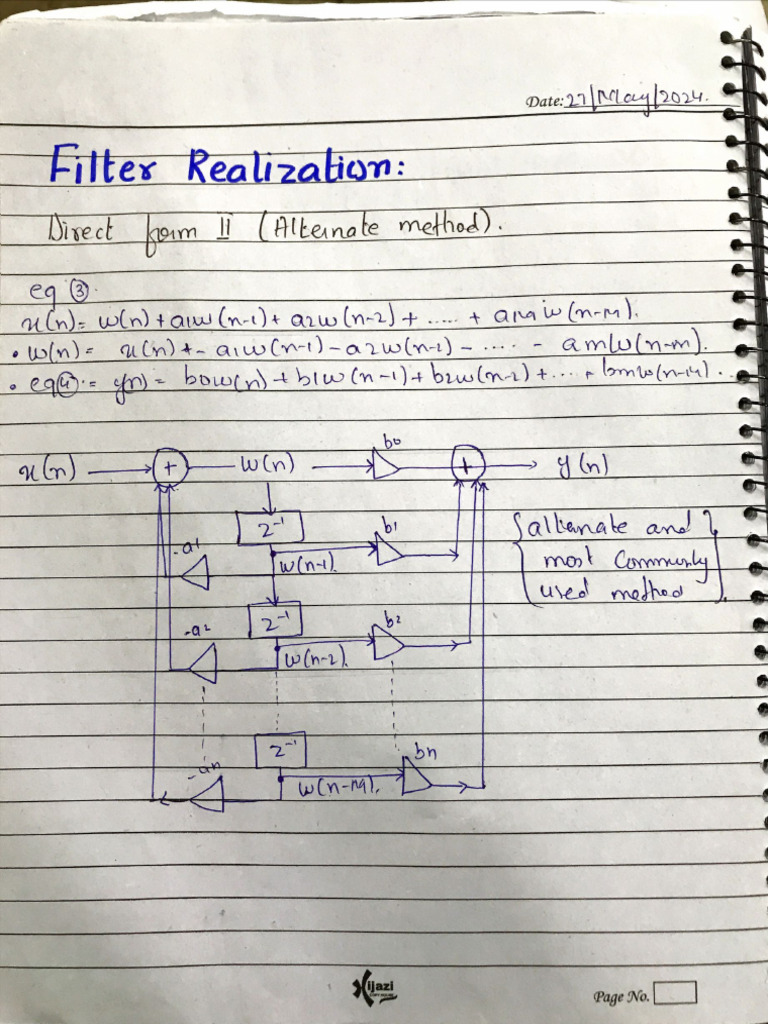 Date: 27/May/2024.
Filter Realization:
Direct form II (Alternate method).
eq ③.
x(n)= w(n) + a1w(n-1) + a2w(n-2) + ..... + aMw(n-M).
• w(n) = x(n) + - a1w(n-1) - a2w(n-2) - ..... - amw(n-m).
• eq④ = y(n) = b0w(n) + b1w(n-1) + b2w(n-2) + .... + bmw(n-M) ..
x(n) + w(n) b0 + y(n)
z⁻¹ b1
-a1 w(n-1).
{alternate and
most Commonly
used method}.
z⁻¹ b2
-a2 w(n-2).
z⁻¹ bn
-an w(n-M).
Hijazi
Page No.